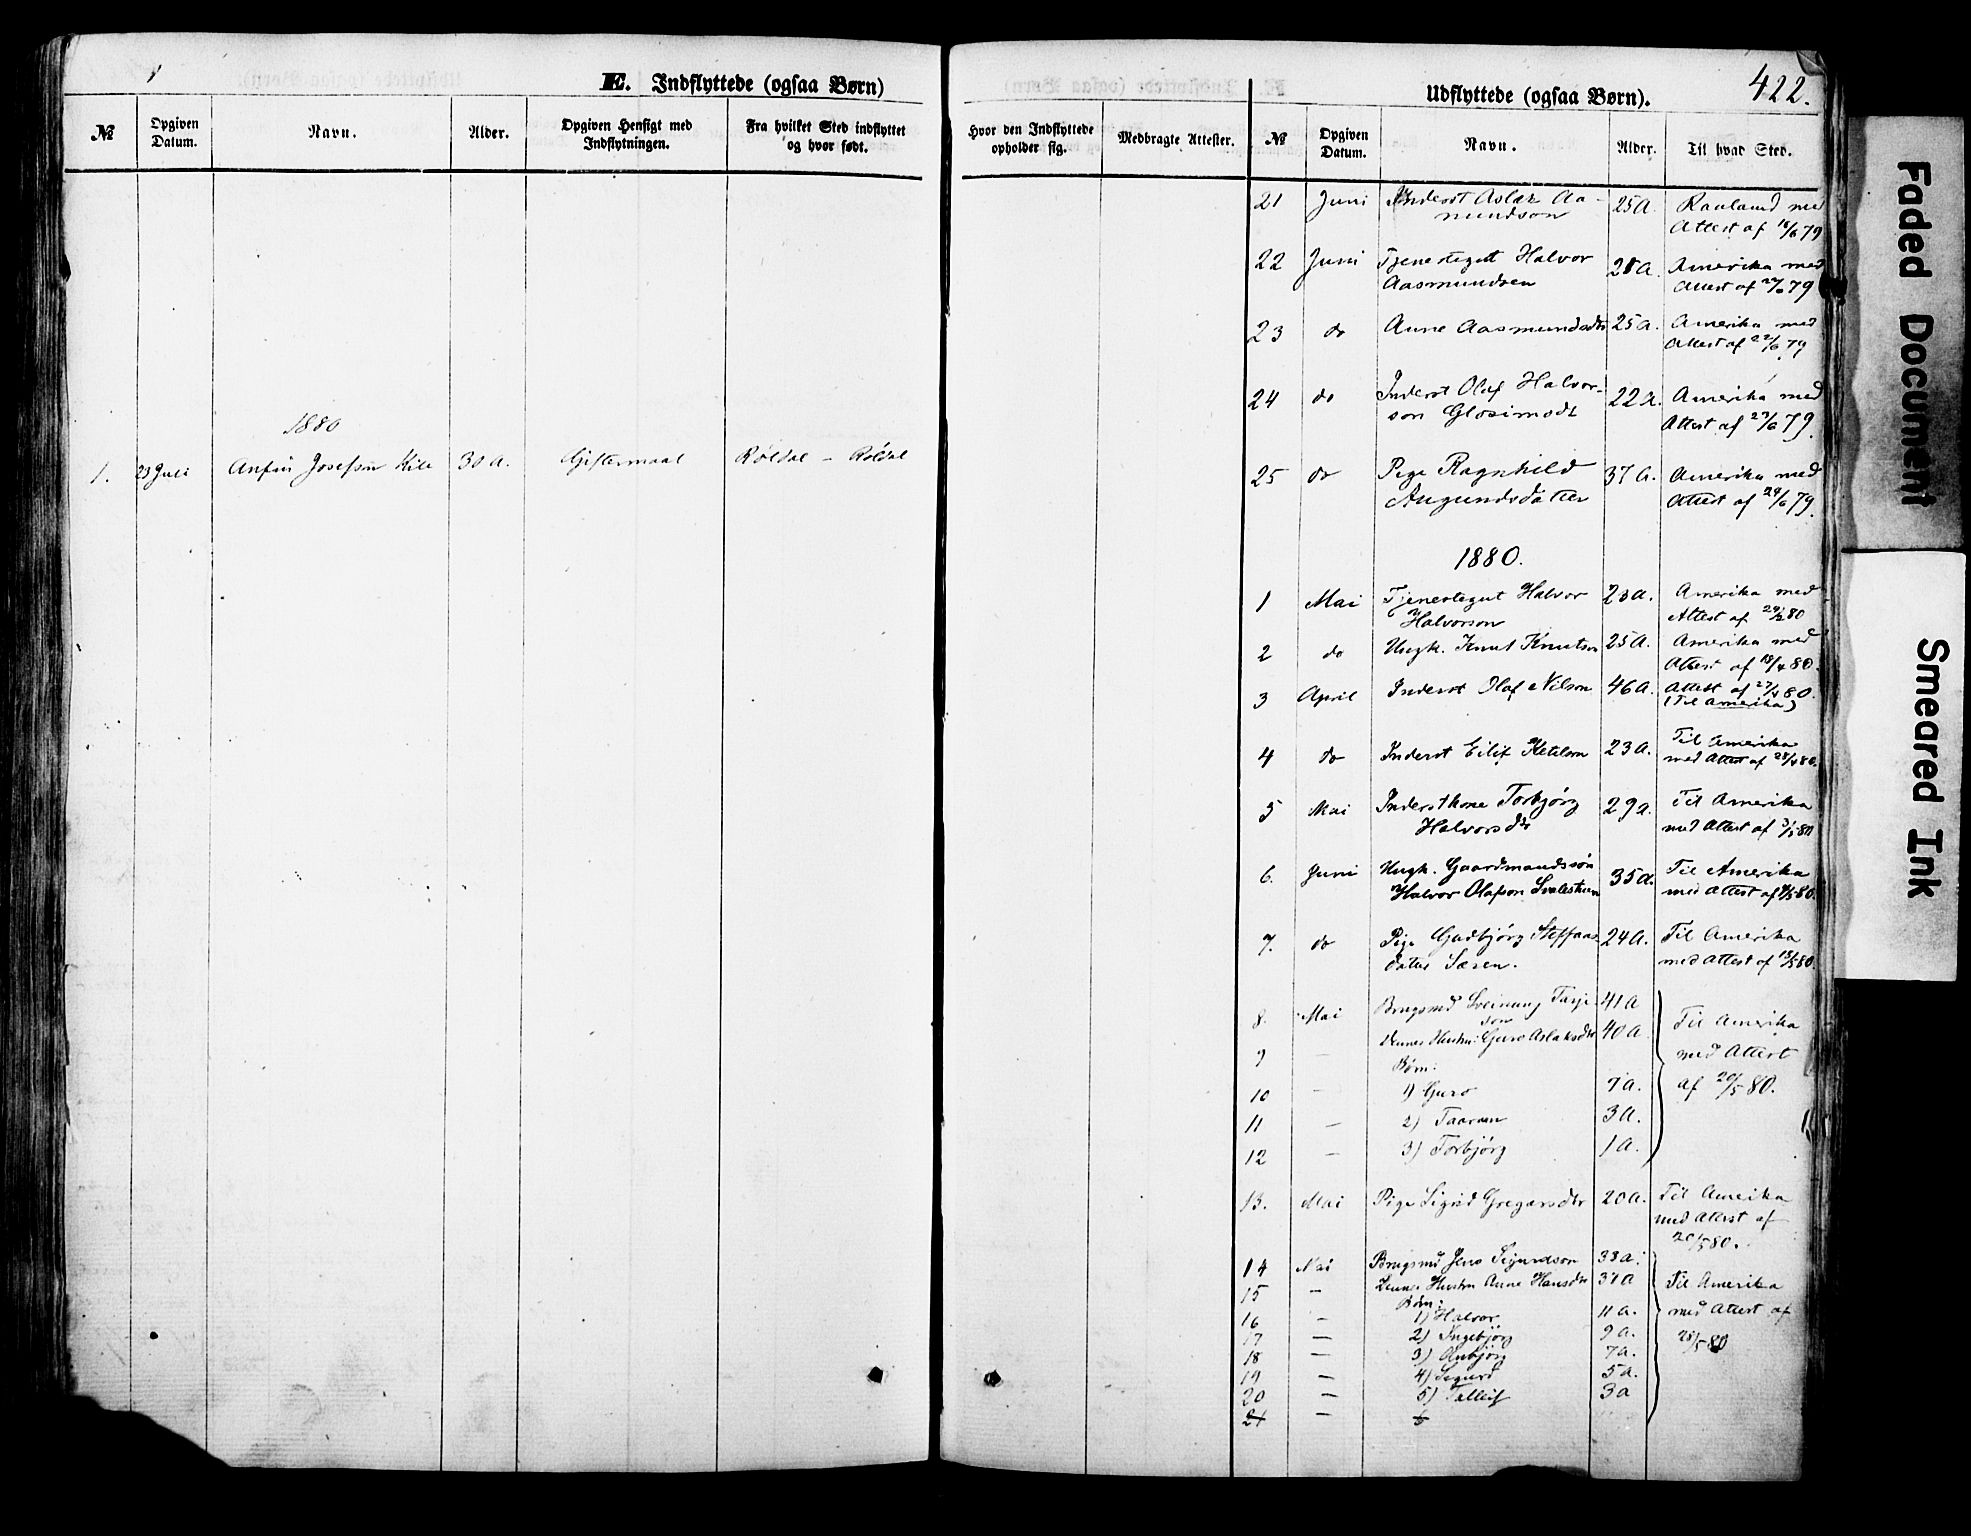 E. Indflyttede (ogsaa Børn)
№ Opgiven Datum. Navn. Alder. Opgiven Hensigt med Indflytningen. Fra hvilket Sted indflyttet og hvor født.
1880
1. 23 Juli Anfin Josefsøn Kile 30 A. Giftermaal Røldal – Røldal
422.
Udflyttede (ogsaa Børn).
Hvor den Indflyttede opholder sig. Medbragte Attester. № Opgiven Datum. Navn. Alder. Til hvad Sted.
21 Juni Inderst Aslak Aa- 25 A. Rauland med
mundson Attest af 18/6 79
22 Juni Tjenestegut Halvor 28 A. Amerika med
Aasmundsen Attest af 79
23 do Anne Aasmundsdtr 25 A. Amerika med
Attest af 22/6 79
24 do Inderst Olaf Halvor- 22 A. Amerika med
son Glosimodt Attest af 79.
25 do Pige Ragnhild 37 A. Amerika med
Augundsdatter Attest af 29/6 79.
1880.
1 Mai Tjenestegut Halvor 23 A. Amerika med
Halvorson Attest af 80
2 do Ungk. Knut Knutson 25 A. Amerika med
Attest af 18/4 80.
3 April Inderst Olaf Nilson 46 A. Attest af 27/4 80.
(Til Amerika)
4 do Inderst Eilif Ketilson 23 A. Til Amerika
med Attest af 28/4 80.
5 Mai Inderstkone Torbjørg 29 A. Til Amerika
Halvorsdtr med Attest af 3/5 80
6. Juni Ungk. Gaardmandssøn 35 A. Til Amerika
Halvor Olafson med Attest af 80.
7. do Pige Gudbjørg Steffans 24 A. Til Amerika
datter med Attest af 80.
8. Mai Brugsmd Sveinung Tarje- 41 A
son Til Amerika
9 – Dennes Hustru: Guro Aslaksdtr 40 A
med Attest
Børn:
10 – 1) Guro 7 A. af 20/5 80.
11 – 2) Taaran 3 A.
12 – 3) Torbjørg 1 A.
13. Mai Pige Sigrid Gregarsdtr 20 A. Til Amerika
med Attest af
20/5 80.
14 Mai Brugsmd Jens Sigurdson 33 A.
15 – Dennes Hustru Anne Hansdtr 37 A Til Amerika
Børn:
16 – 1) Halvor 11 A. med Attest af
17 – 2) Ingebjørg 9 A.
18 – 3) Anbjørg 7 A. 28/5 80
19 – 4) Sigurd 5 A.
20 – 5) Talleif 3 A
21 – 6
Faded Document
Smeared Ink